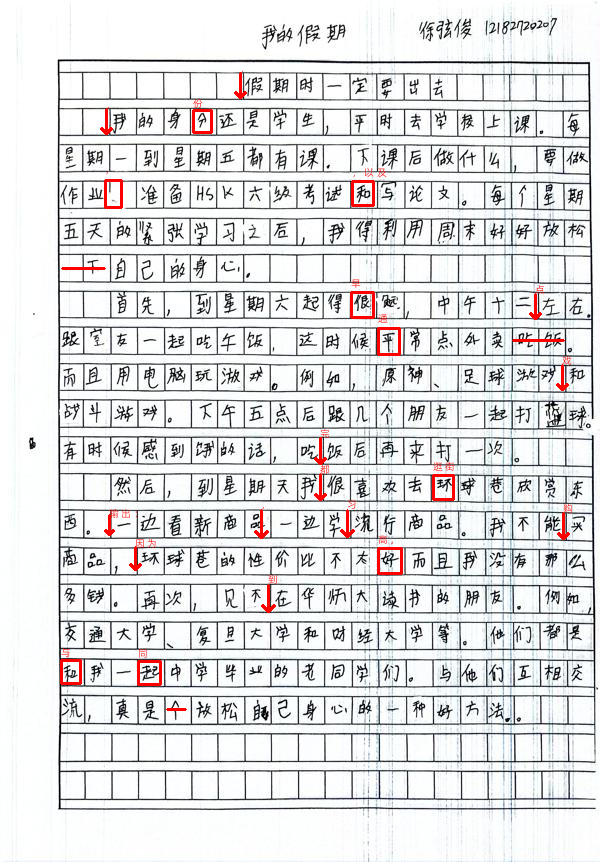 我的假期 徐弦俊 12182720207
假期时一定要出去
份
我的身分还是学生，平时去学校上课。每
星期一到星期五都有课。下课后做什么，要做
，以及
作业！准备HSK六级考试和写论文。每个星期
五天的紧张学习之后，我得利用周末好好放松
一下自己的身心。
早
首先，到星期六起得很晚，中午十二左右。
点
通
跟室友一起吃午饭，这时候平常点外卖吃饭。
戏
而且用电脑玩游戏。例如，原神、足球游戏和
战斗游戏。下午五点后跟几个朋友一起打篮球。
有时候感到饿的话，吃饭后再来打一次。
完
都 逛街
然后，到星期天我很喜欢去环球巷欣赏东
输出 习 购
西。一边看新商品一边学流行商品。我不能买
因为 高，
商品，环球巷的性价比不太好而且我没有那么
到
多钱。再次，见不在华师大读书的朋友。例如，
交通大学、复旦大学和财经大学等。他们都是
与 同
和我一起中学毕业的老同学们。与他们互相交
流，真是个放松自己身心的一种好方法。